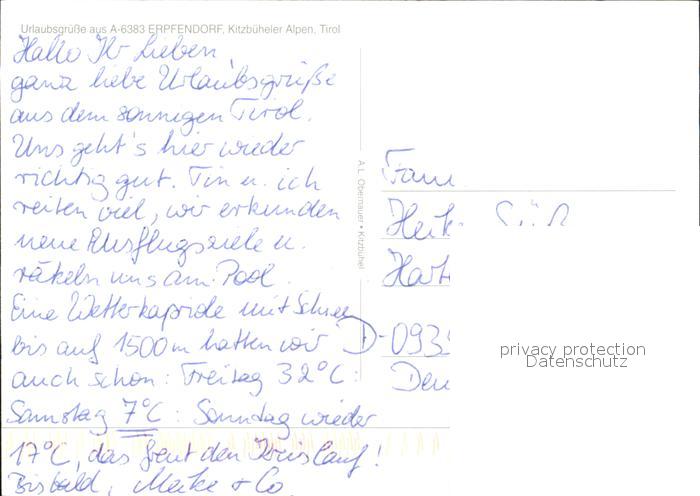 Urlaubsgrüße aus A-6383 ERPFENDORF, Kitzbüheler Alpen, Tirol
Hallo Ihr Lieben,
ganz liebe Urlaubsgrüße
aus dem sonnigen Tirol.
Uns geht's hier wieder
richtig gut. Tin u. ich
reiten viel, wir erkunden
neue Ausflugsziele u.
räkeln uns am Pool.
Eine Wetterkapriole mit Schnee
bis auf 1500m hatten wir
auch schon: Freitag 32°C:
Samstag 7°C: Sonntag wieder
17°C, das freut den Kreislauf!
Bis bald, Meike + Co.
A.L. Obernauer • Kitzbühel
Frau
Heik
Hart
D-093
Deu
privacy protection
Datenschutz